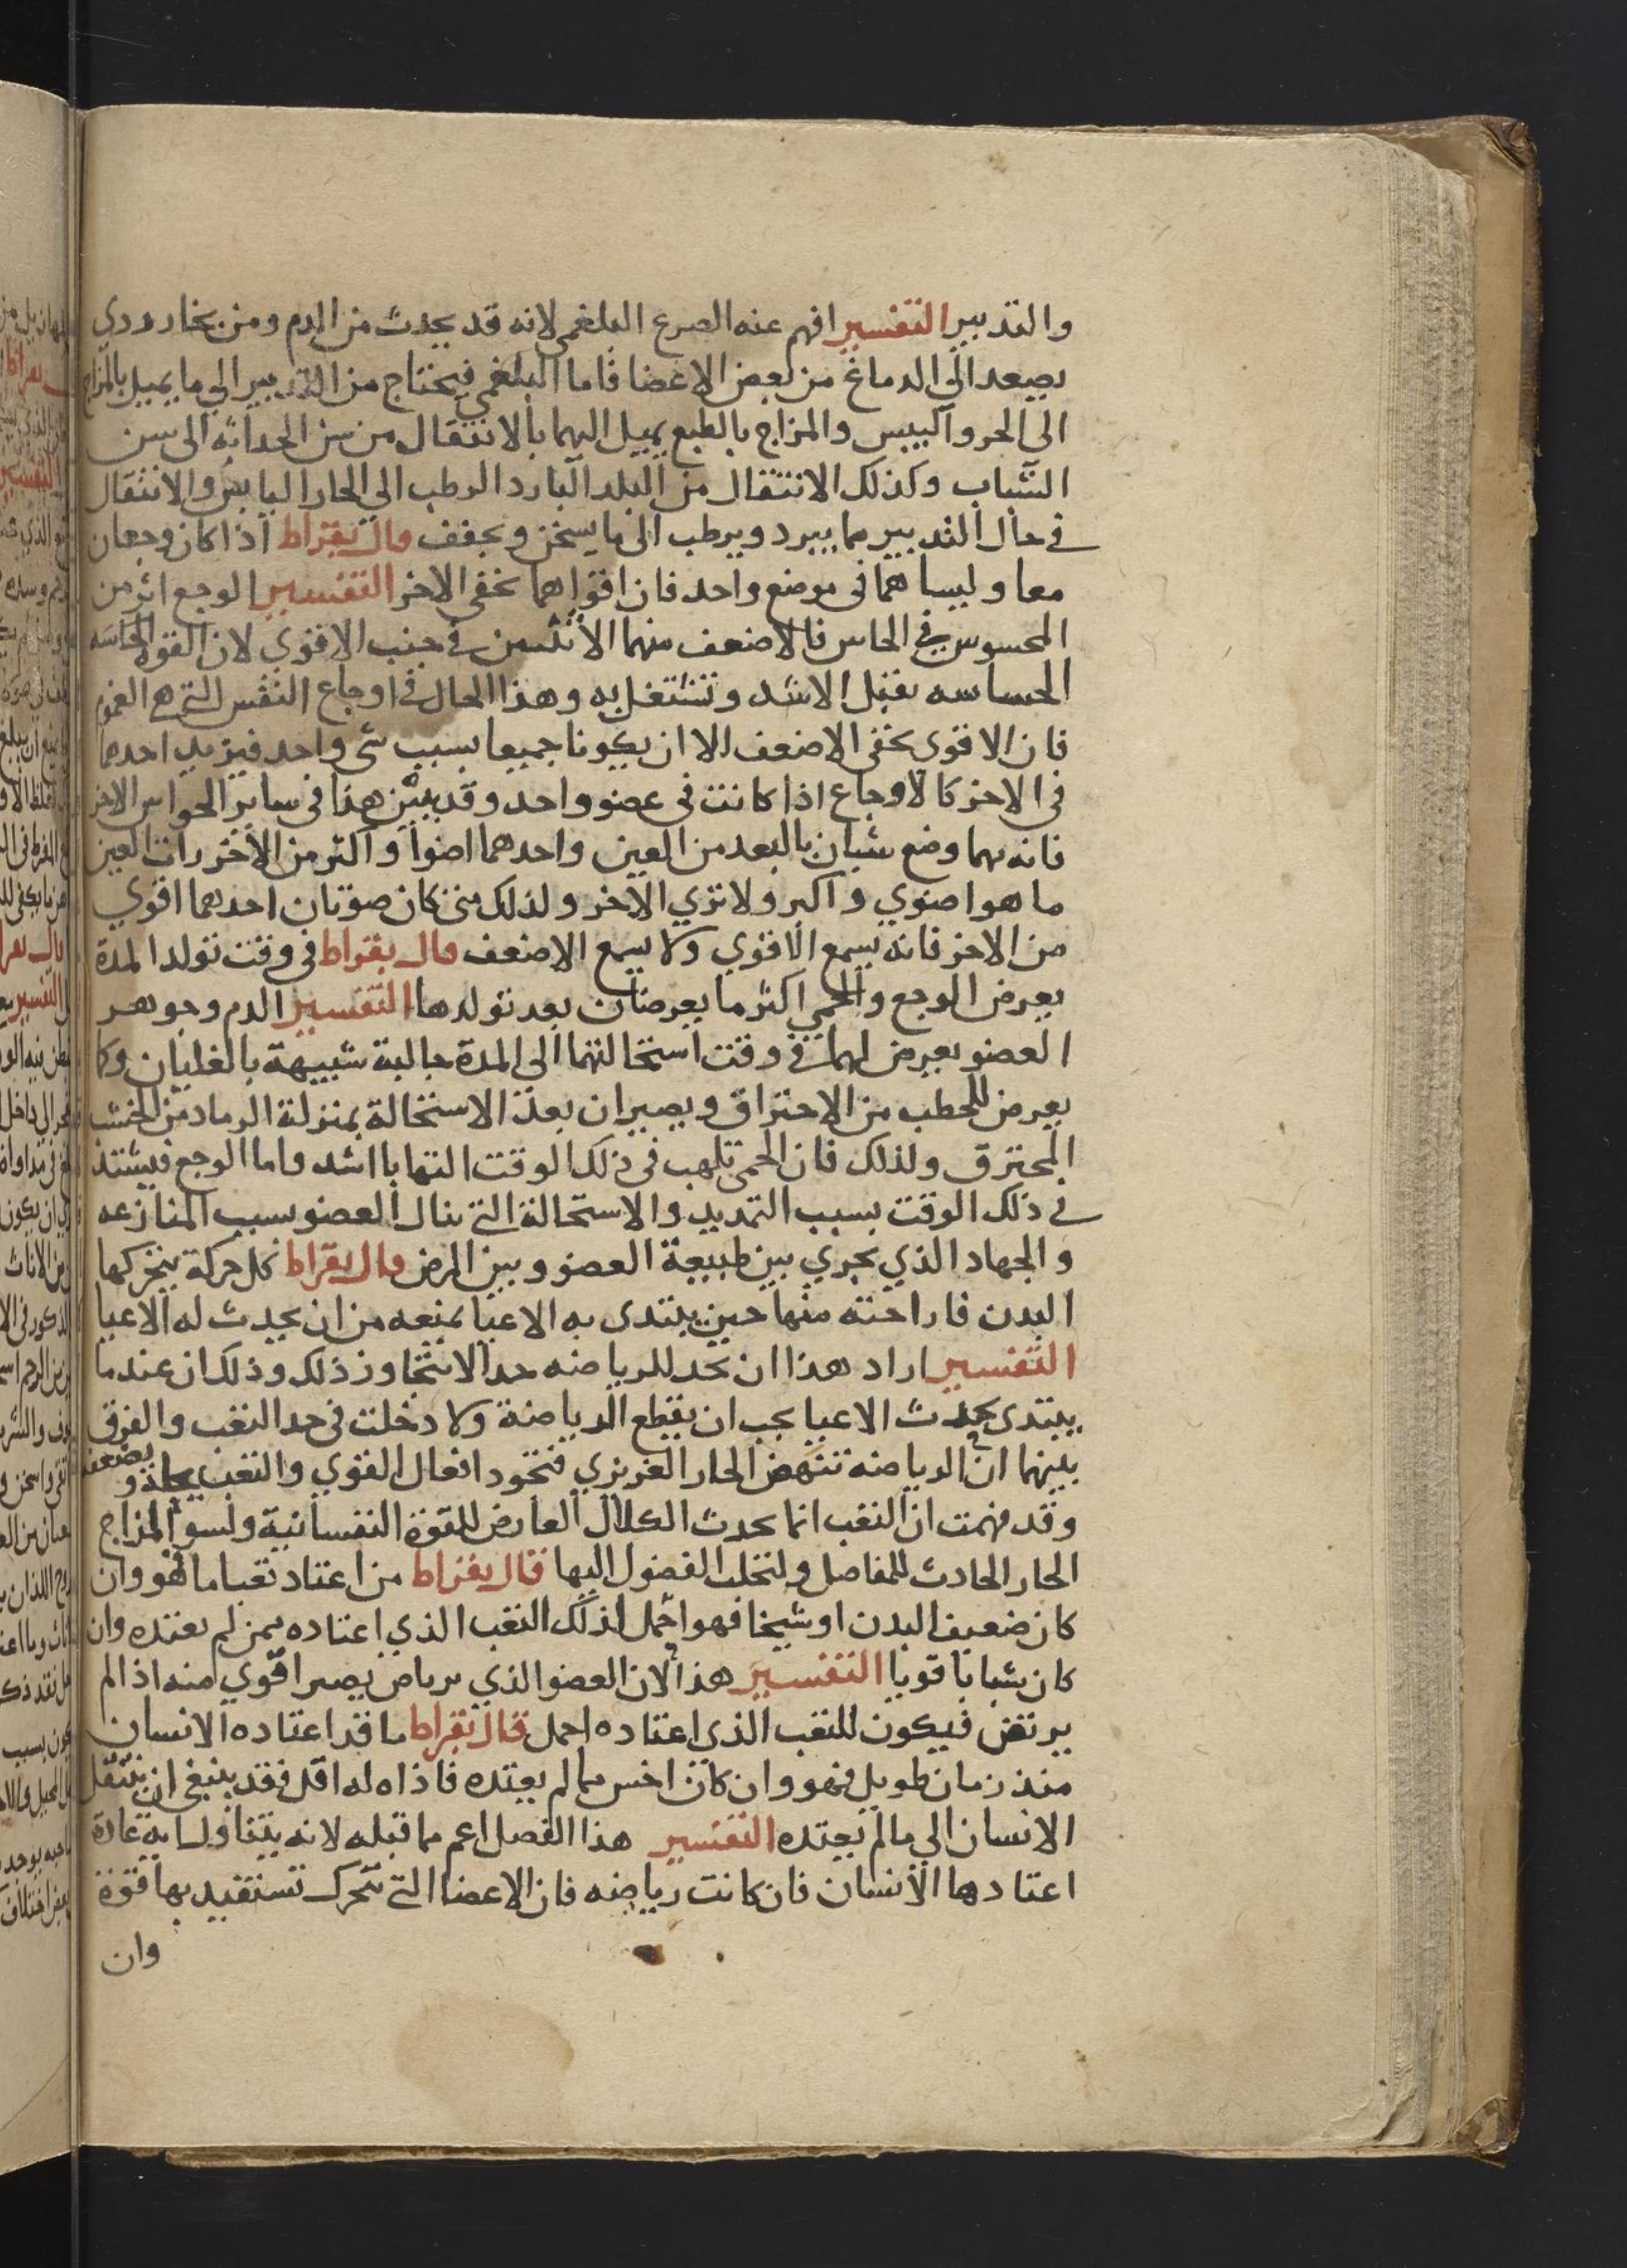 والتدبير التفسير افهم عنه الصرع البلغمي لانه قد يحدث من الدم ومن بخار ردي
يصعد الي الدماغ من بعض الاعضا فاما البلغمي فيحتاج من التدبير الي ما يميل بالمزاج
الى الحر واليبس والمزاج بالطبع يميل اليهما بالانتقال من سن الحداثه الى سن
الشباب وكذلك الانتقال من البلد البارد الرطب الي الحار اليابس والانتقال
في حال التدبير مما يبرد ويرطب الى ما يسخن ويجفف قال بقراط اذا كان وجعان
معا وليسا هما في موضع واحد فان اقواهما يخفى الاخر التفسير الوجع اثر من
المحسوس في الحاس فالاضعف منهما لا في جنب الاقوي لان القوة الحاسه
الحساسه تقبل الاشد وتشتغل به وهذا الحال في اوجاع النفس التي هي الغموم
فان الاقوى يخفى الاضعف الا ان يكونا جميعا بسبب شي واحد فيزيد احدهما
في الاخر كالاوجاع اذا كانت في عضو واحد وقد يبين هذا في ساير الحواس الاخر
فانه مهما وضع شيان بالبعد من العين واحدهما اضوا واكثر من الاخر رات العين
ما هو اضوي واكبر ولا تري الاخر ولذلك متى كان صوتان احدهما اقوي
من الاخر فانه يسمع الاقوي ولا يسمع الاضعف قال بقراط في وقت تولد المدة
يعرض الوجع والحمي اكثر ما يعرضان بعد تولدها التفسير الدم وجوهر
العضو يعرض لهما في وقت استحالتهما الي المدة حالية شبيهة بالغليان وكا
يعرض للحطب من الاحتراق ويصيران بعد الاستحالة بمنزلة الرماد من الخشب
المحترق ولذلك فان الحمى تلهب في ذلك الوقت التهابا اشد واما الوجع فيشتد
في ذلك الوقت بسبب التمديد والاستحالة التي تنال العضو بسبب المنازعه
والجهاد الذي يجري بين طبيعة العضو وبين المرض قال بقراط كل حركة يتحركها
البدن فاراحته منها حين يبتدى به الاعيا يمنعه من ان يحدث له الاعيا
التفسير اراد هذا ان يحد للرياضه حدا لا يتجاوز ذلك وذلك ان عندما
يبتدى يحدث الاعيا يجب ان يقطع الرياضة ولا دخلت في حد التعب والفرق
بينهما ان الرياضه تنهض الحار الغريزي فتجود افعال القوي والتعب يحله ويضعفه
وقد فهمت ان التعب انما يحدث الكلال العارض للقوة النفسانية ولسو المزاج
الحار الحادث للمفاصل ولتحلب الفضول اليها قال بقراط من اعتاد تعبا ما فهو وان
كان ضعيف البدن او شيخا فهو احمل لذلك التعب الذي اعتاده ممن لم يعتده وان
كان شبابا قويا التفسير هذا لان العضو الذي يرتاض يصير اقوي منه اذا لم
يرتض فيكون للتعب الذي اعتاده احمل قال بقراط ما قد اعتاده الانسان
منذ زمان طويل فهو وان كان اخس مما لم يعتده فاذاه له اقل فقد ينبغي ان ينتقل
الانسان الي ما لم يعتده التفسير هذا الفصل اعم مما قبله لانه يتناول اية عادة
اعتادها الانسان فان كانت رياضه فان الاعضا التي تتحرك تستفيد بها قوة
وان